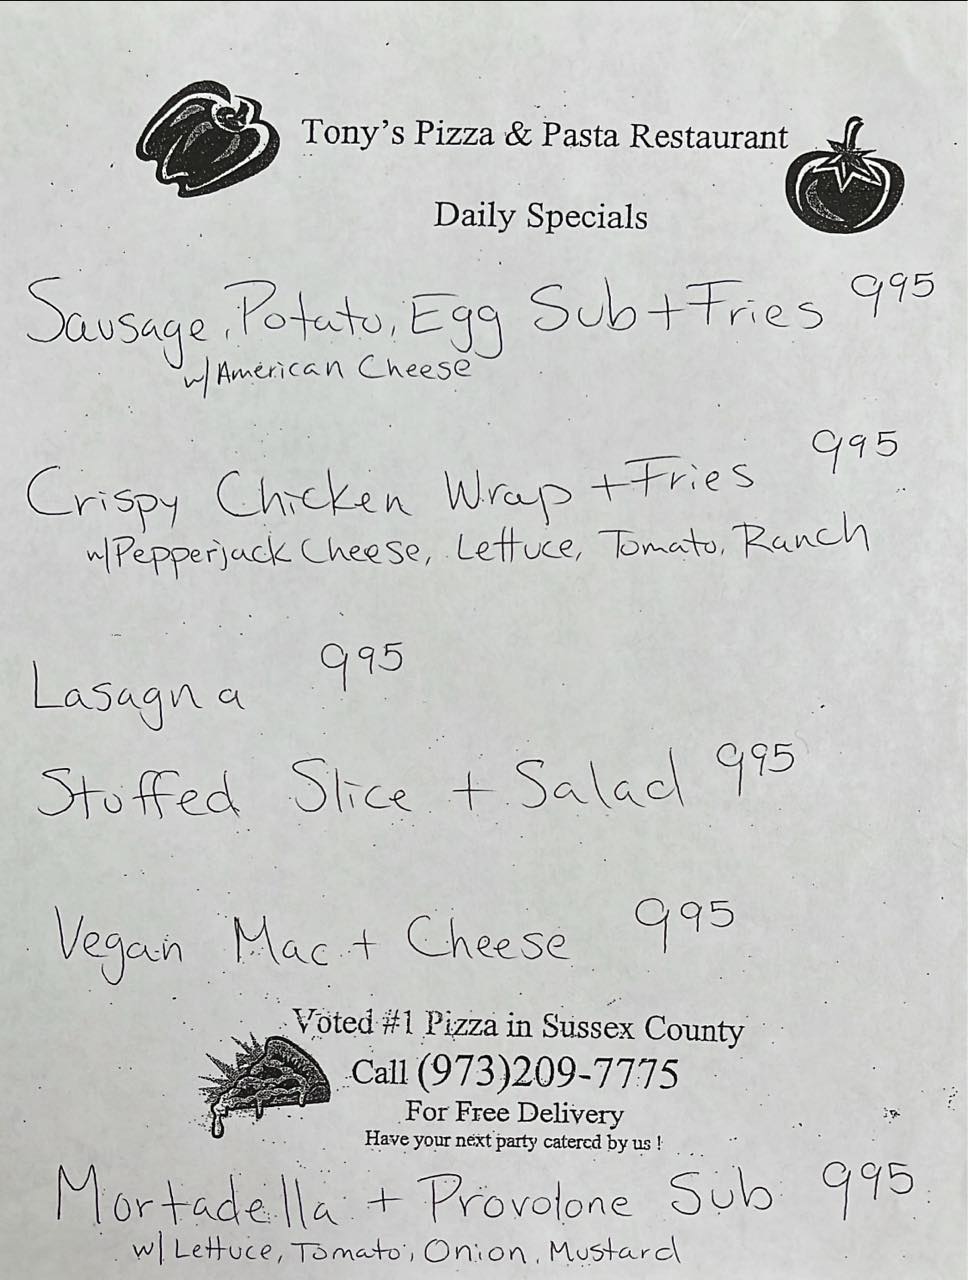 Tony's Pizza & Pasta Restaurant
Daily Specials
Sausage, Potato, Egg Sub + Fries 995
w/ American Cheese
Crispy Chicken Wrap + Fries 995
w/ Pepperjack Cheese, Lettuce, Tomato, Ranch
Lasagna 995
Stuffed Slice + Salad 995
Vegan Mac + Cheese 995
Voted #1 Pizza in Sussex County
Call (973)209-7775
For Free Delivery
Have your next party catered by us !
Mortadella + Provolone Sub 995
w/ Lettuce, Tomato, Onion, Mustard